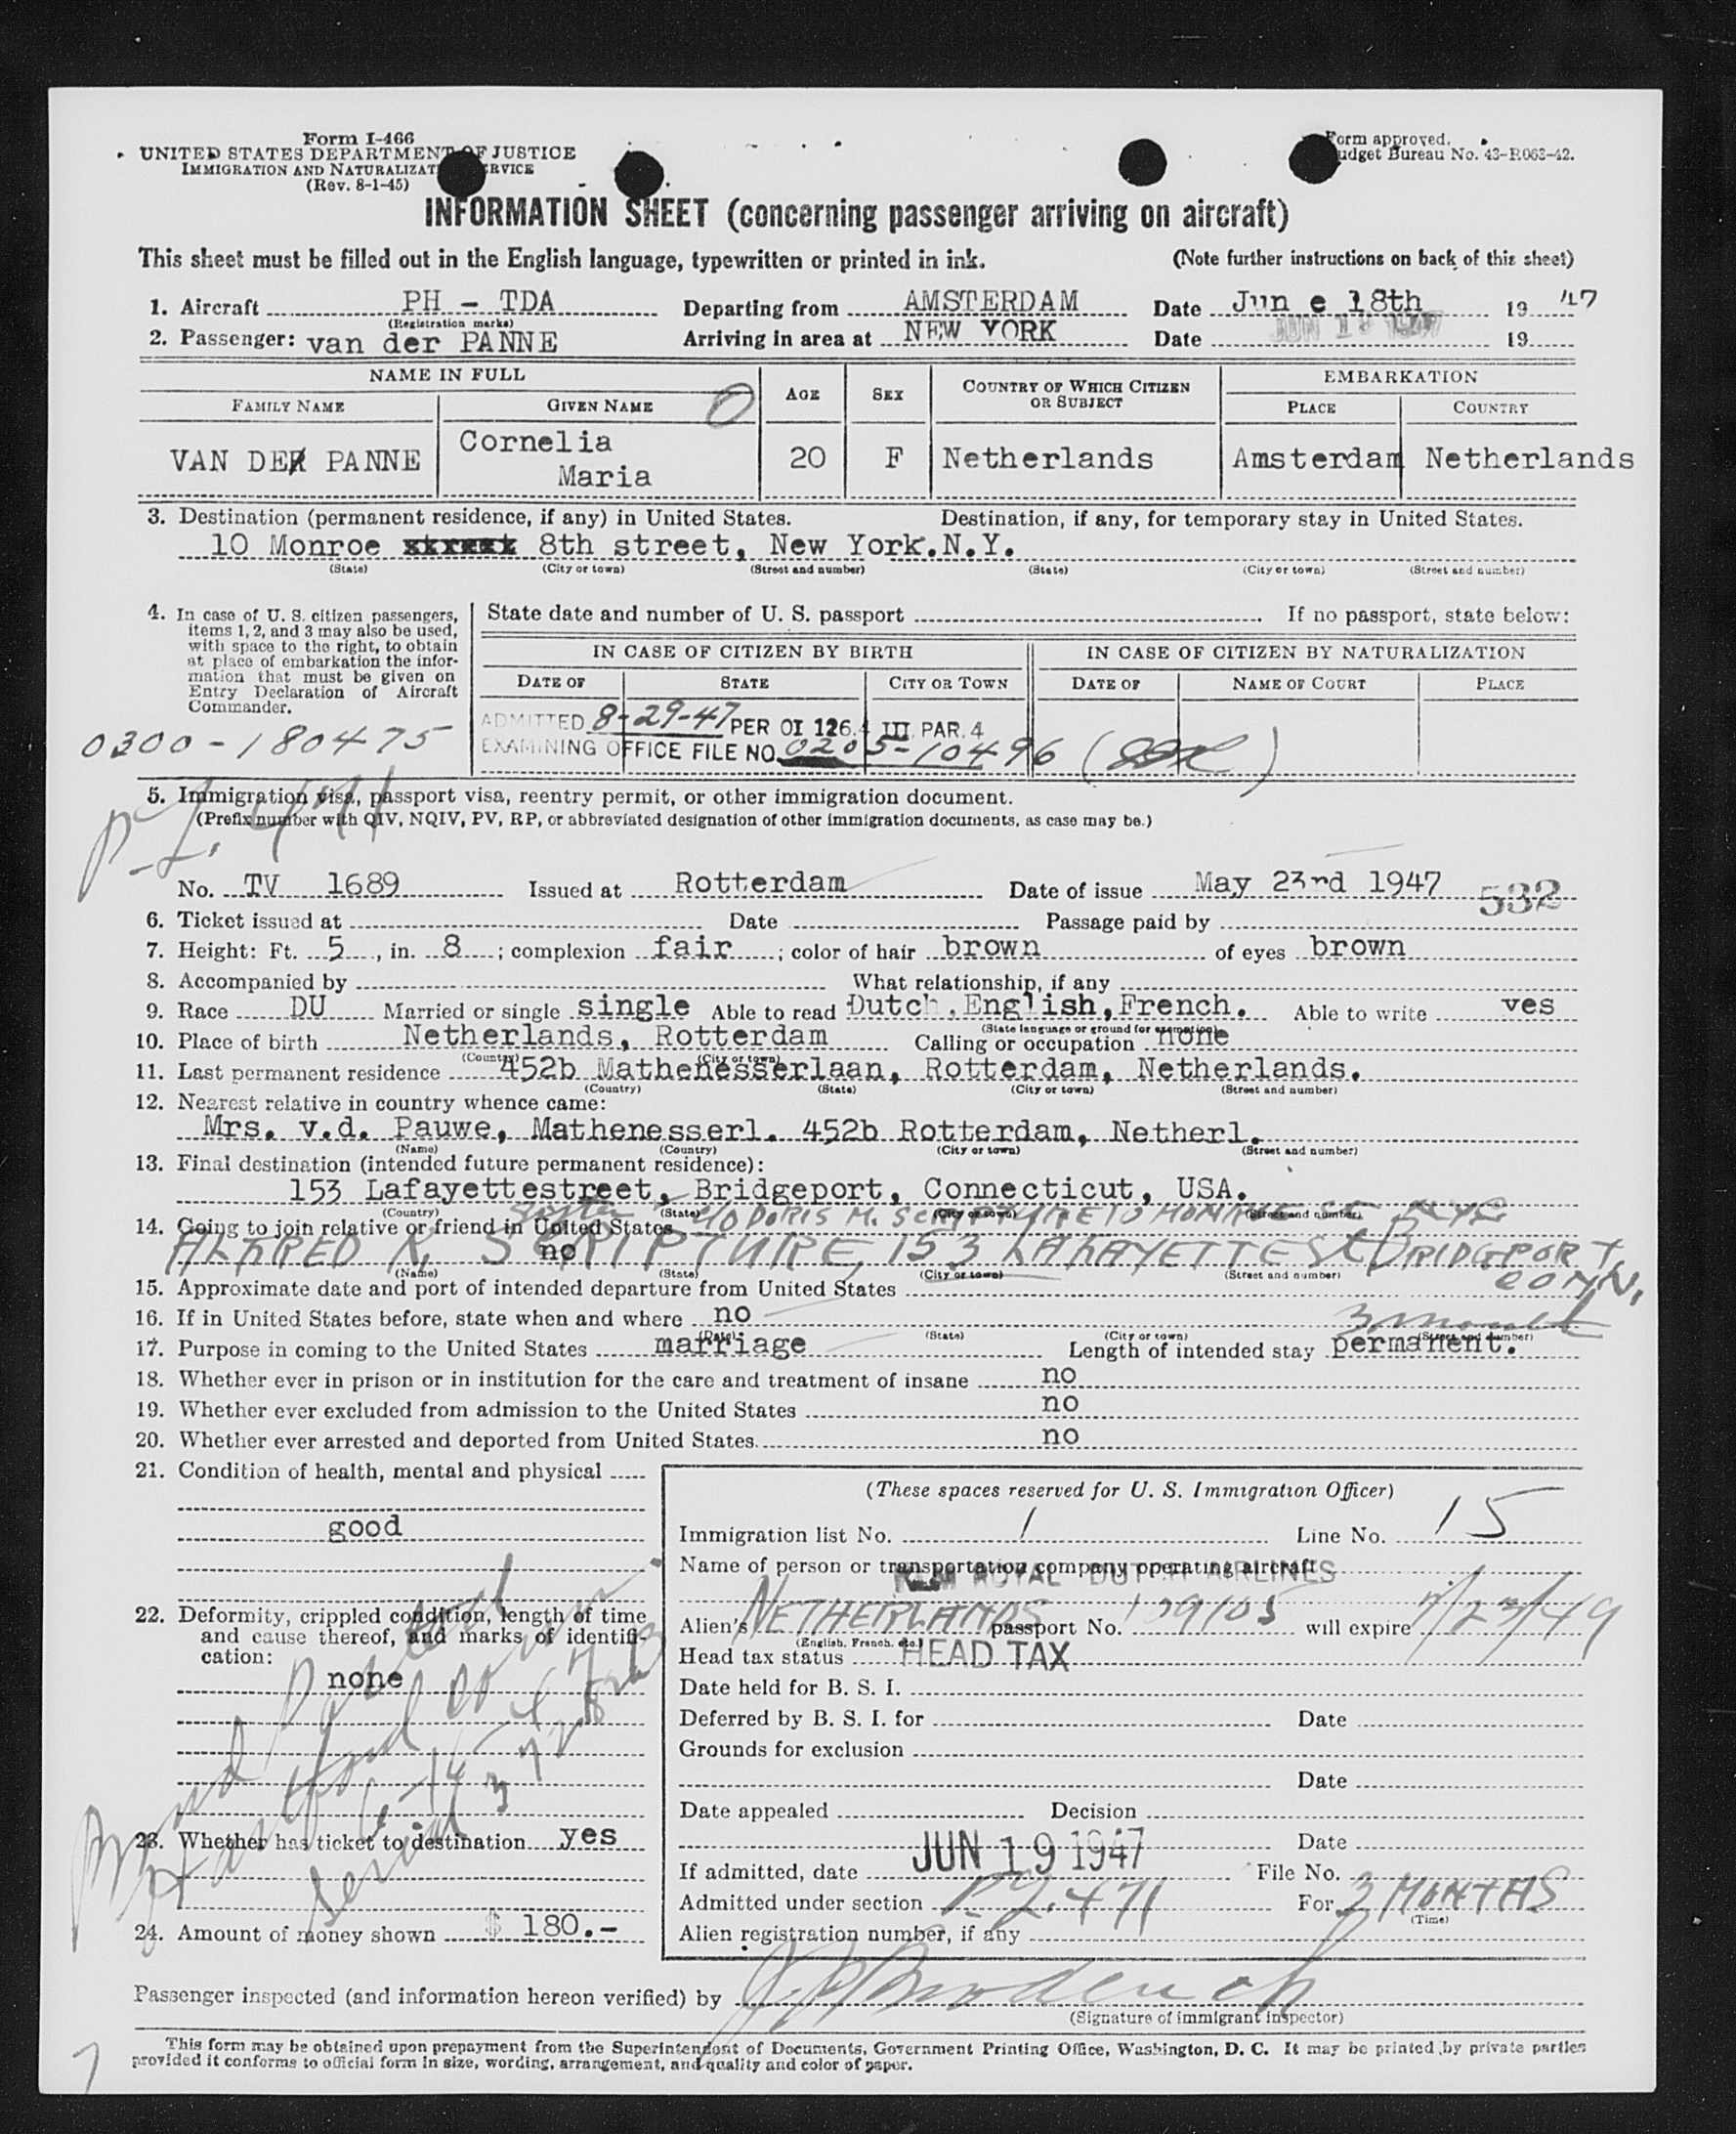 Form I-466
UNITED STATES DEPARTMENT OF JUSTICE
IMMIGRATION AND NATURALIZAT RVICE
(Rev. 8-1-45)
Form approved.
udget Bureau No. 43-R063-42.
INFORMATION SHEET (concerning passenger arriving on aircraft)
This sheet must be filled out in the English language, typewritten or printed in ink. (Note further instructions on back of this sheet)
1. Aircraft PH - TDA Departing from AMSTERDAM Date Jun e 18th 19 '47
(Registration marks)
2. Passenger: van der PANNE Arriving in area at NEW YORK Date JUN 1947 19
NAME IN FULL AGE SEX COUNTRY OF WHICH CITIZEN OR SUBJECT EMBARKATION
FAMILY NAME GIVEN NAME PLACE COUNTRY
VAN DER PANNE Cornelia Maria 20 F Netherlands Amsterdam Netherlands
3. Destination (permanent residence, if any) in United States. Destination, if any, for temporary stay in United States.
10 Monroe 8th street, New York.N.Y.
(State) (City or town) (Street and number) (State) (City or town) (Street and number)
4. In case of U. S. citizen passengers,
items 1, 2, and 3 may also be used,
with space to the right, to obtain
at place of embarkation the infor-
mation that must be given on
Entry Declaration of Aircraft
Commander.
State date and number of U. S. passport If no passport, state below:
IN CASE OF CITIZEN BY BIRTH IN CASE OF CITIZEN BY NATURALIZATION
DATE OF STATE CITY OR TOWN DATE OF NAME OF COURT PLACE
0300-180475
ADMITTED 8-29-47 PER OI 126.4 III PAR. 4
EXAMINING OFFICE FILE NO. 0205-10496
5. Immigration visa, passport visa, reentry permit, or other immigration document.
(Prefix number with QIV, NQIV, PV, RP, or abbreviated designation of other immigration documents, as case may be.)
471
No. TV 1689 Issued at Rotterdam Date of issue May 23rd 1947 532
6. Ticket issued at Date Passage paid by
7. Height: Ft. 5, in. 8; complexion fair; color of hair brown of eyes brown
8. Accompanied by What relationship, if any
9. Race DU Married or single single Able to read Dutch.English,French. Able to write yes
(State language or ground for exemption)
10. Place of birth Netherlands, Rotterdam Calling or occupation none
(Country) (City or town)
11. Last permanent residence 452b Mathenesserlaan, Rotterdam, Netherlands.
(Country) (State) (City or town) (Street and number)
12. Nearest relative in country whence came:
Mrs. v.d. Pauwe, Mathenesserl. 452b Rotterdam, Netherl.
(Name) (Country) (City or town) (Street and number)
13. Final destination (intended future permanent residence):
153 Lafayettestreet, Bridgeport, Connecticut, USA.
(Country) (State) (City or town) (Street and number)
sister c/o DORIS M. SCRIPTURE 10 MONROE ST NYC
14. Going to join relative or friend in United States
no
ALFRED K. SCRIPTURE, 153 LAFAYETTE St BRIDGPORT, CONN.
(Name) (State) (City or town) (Street and number)
15. Approximate date and port of intended departure from United States
16. If in United States before, state when and where no
(Date) (State) (City or town) (Street and number)
3 months
17. Purpose in coming to the United States marriage Length of intended stay permanent.
18. Whether ever in prison or in institution for the care and treatment of insane no
19. Whether ever excluded from admission to the United States no
20. Whether ever arrested and deported from United States. no
21. Condition of health, mental and physical
good
22. Deformity, crippled condition, length of time
and cause thereof, and marks of identifi-
cation:
none
Bond Posted
Hartford Conn
Serial
23. Whether has ticket to destination yes
24. Amount of money shown $ 180.-
(These spaces reserved for U. S. Immigration Officer)
Immigration list No. 1 Line No. 15
Name of person or transportation company operating aircraft
KLM ROYAL DUTCH AIRLINES
Alien's NETHERLANDS passport No. 139105 will expire 4/23/49
(English, French, etc.)
Head tax status HEAD TAX
Date held for B. S. I.
Deferred by B. S. I. for Date
Grounds for exclusion
Date
Date appealed Decision
Date
If admitted, date JUN 19 1947 File No.
Admitted under section P.2.471 For 3 MONTHS
(Time)
Alien registration number, if any
Passenger inspected (and information hereon verified) by
(Signature of immigrant inspector)
This form may be obtained upon prepayment from the Superintendent of Documents, Government Printing Office, Washington, D. C. It may be printed by private parties
provided it conforms to official form in size, wording, arrangement, and quality and color of paper.
7